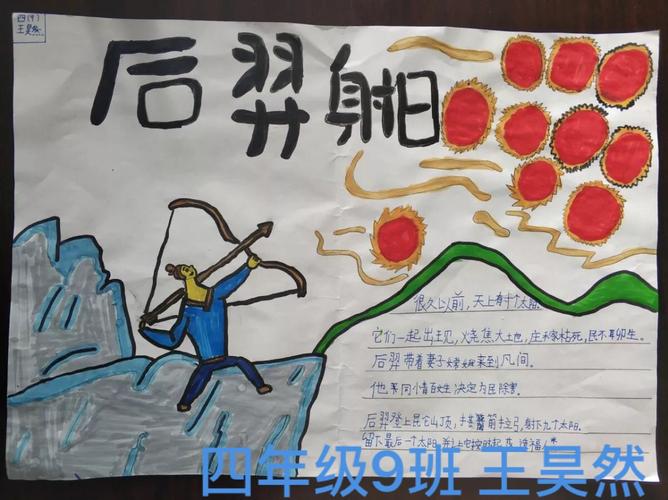 四(9)
王昊然
后羿射日
很久以前,天上有十个太阳。
它们一起出现,烧焦大地,庄稼枯死,民不聊生。
后羿带着妻子嫦娥来到凡间。
他同情百姓决定为民除害。
后羿登上昆仑山顶,搭箭拉弓,射下九个太阳。
留下最后一个太阳,它按时起落,造福人类
四年级9班 王昊然